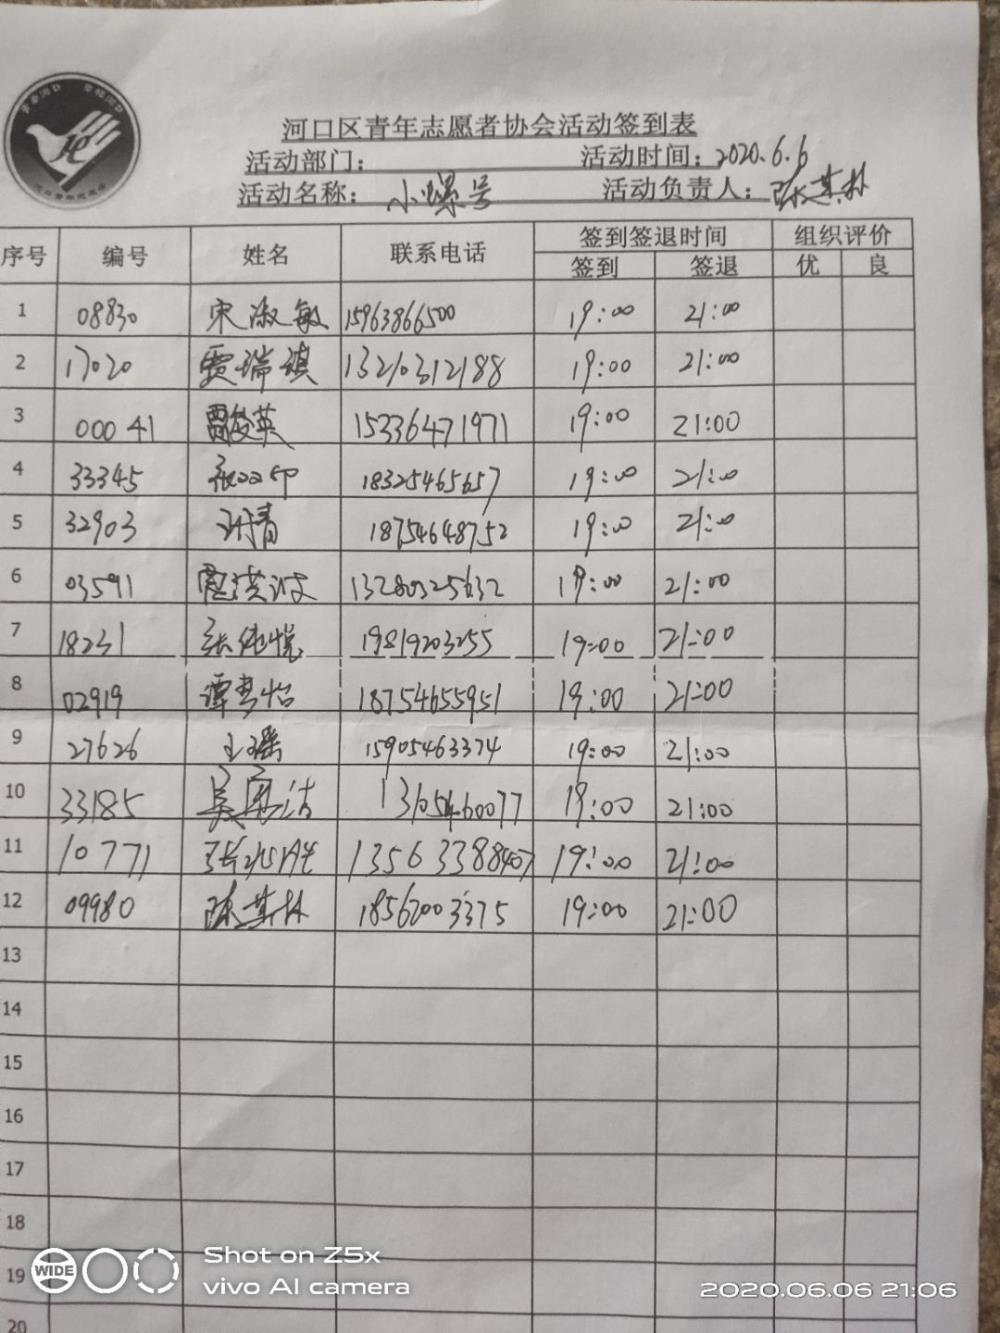 河口区青年志愿者协会活动签到表
活动部门： 活动时间：2020.6.6
活动名称：小螺号 活动负责人：陈其林
序号 编号 姓名 联系电话 签到签退时间 组织评价
签到 签退 优 良
1 08830 宋淑敏 15963866500 19:00 21:00
2 17020 贾瑞祺 13210312188 19:00 21:00
3 00041 英 15336471971 19:00 21:00
4 33345 18325465657 19:00 21:00
5 32903 青 18754648752 19:00 21:00
6 03591 洪波 13280325632 19:00 21:00
7 18231 张纯悦 19819203255 19:00 21:00
8 02919 谭 怡 18754655951 19:00 21:00
9 27626 王瑶 15905463374 19:00 21:00
10 33185 吴 洁 19:00 21:00
11 10771 张 13563388407 19:00 21:00
12 09980 陈其林 18562003375 19:00 21:00
13
14
15
16
17
18
19
20
WIDE Shot on Z5x
vivo AI camera 2020.06.06 21:06